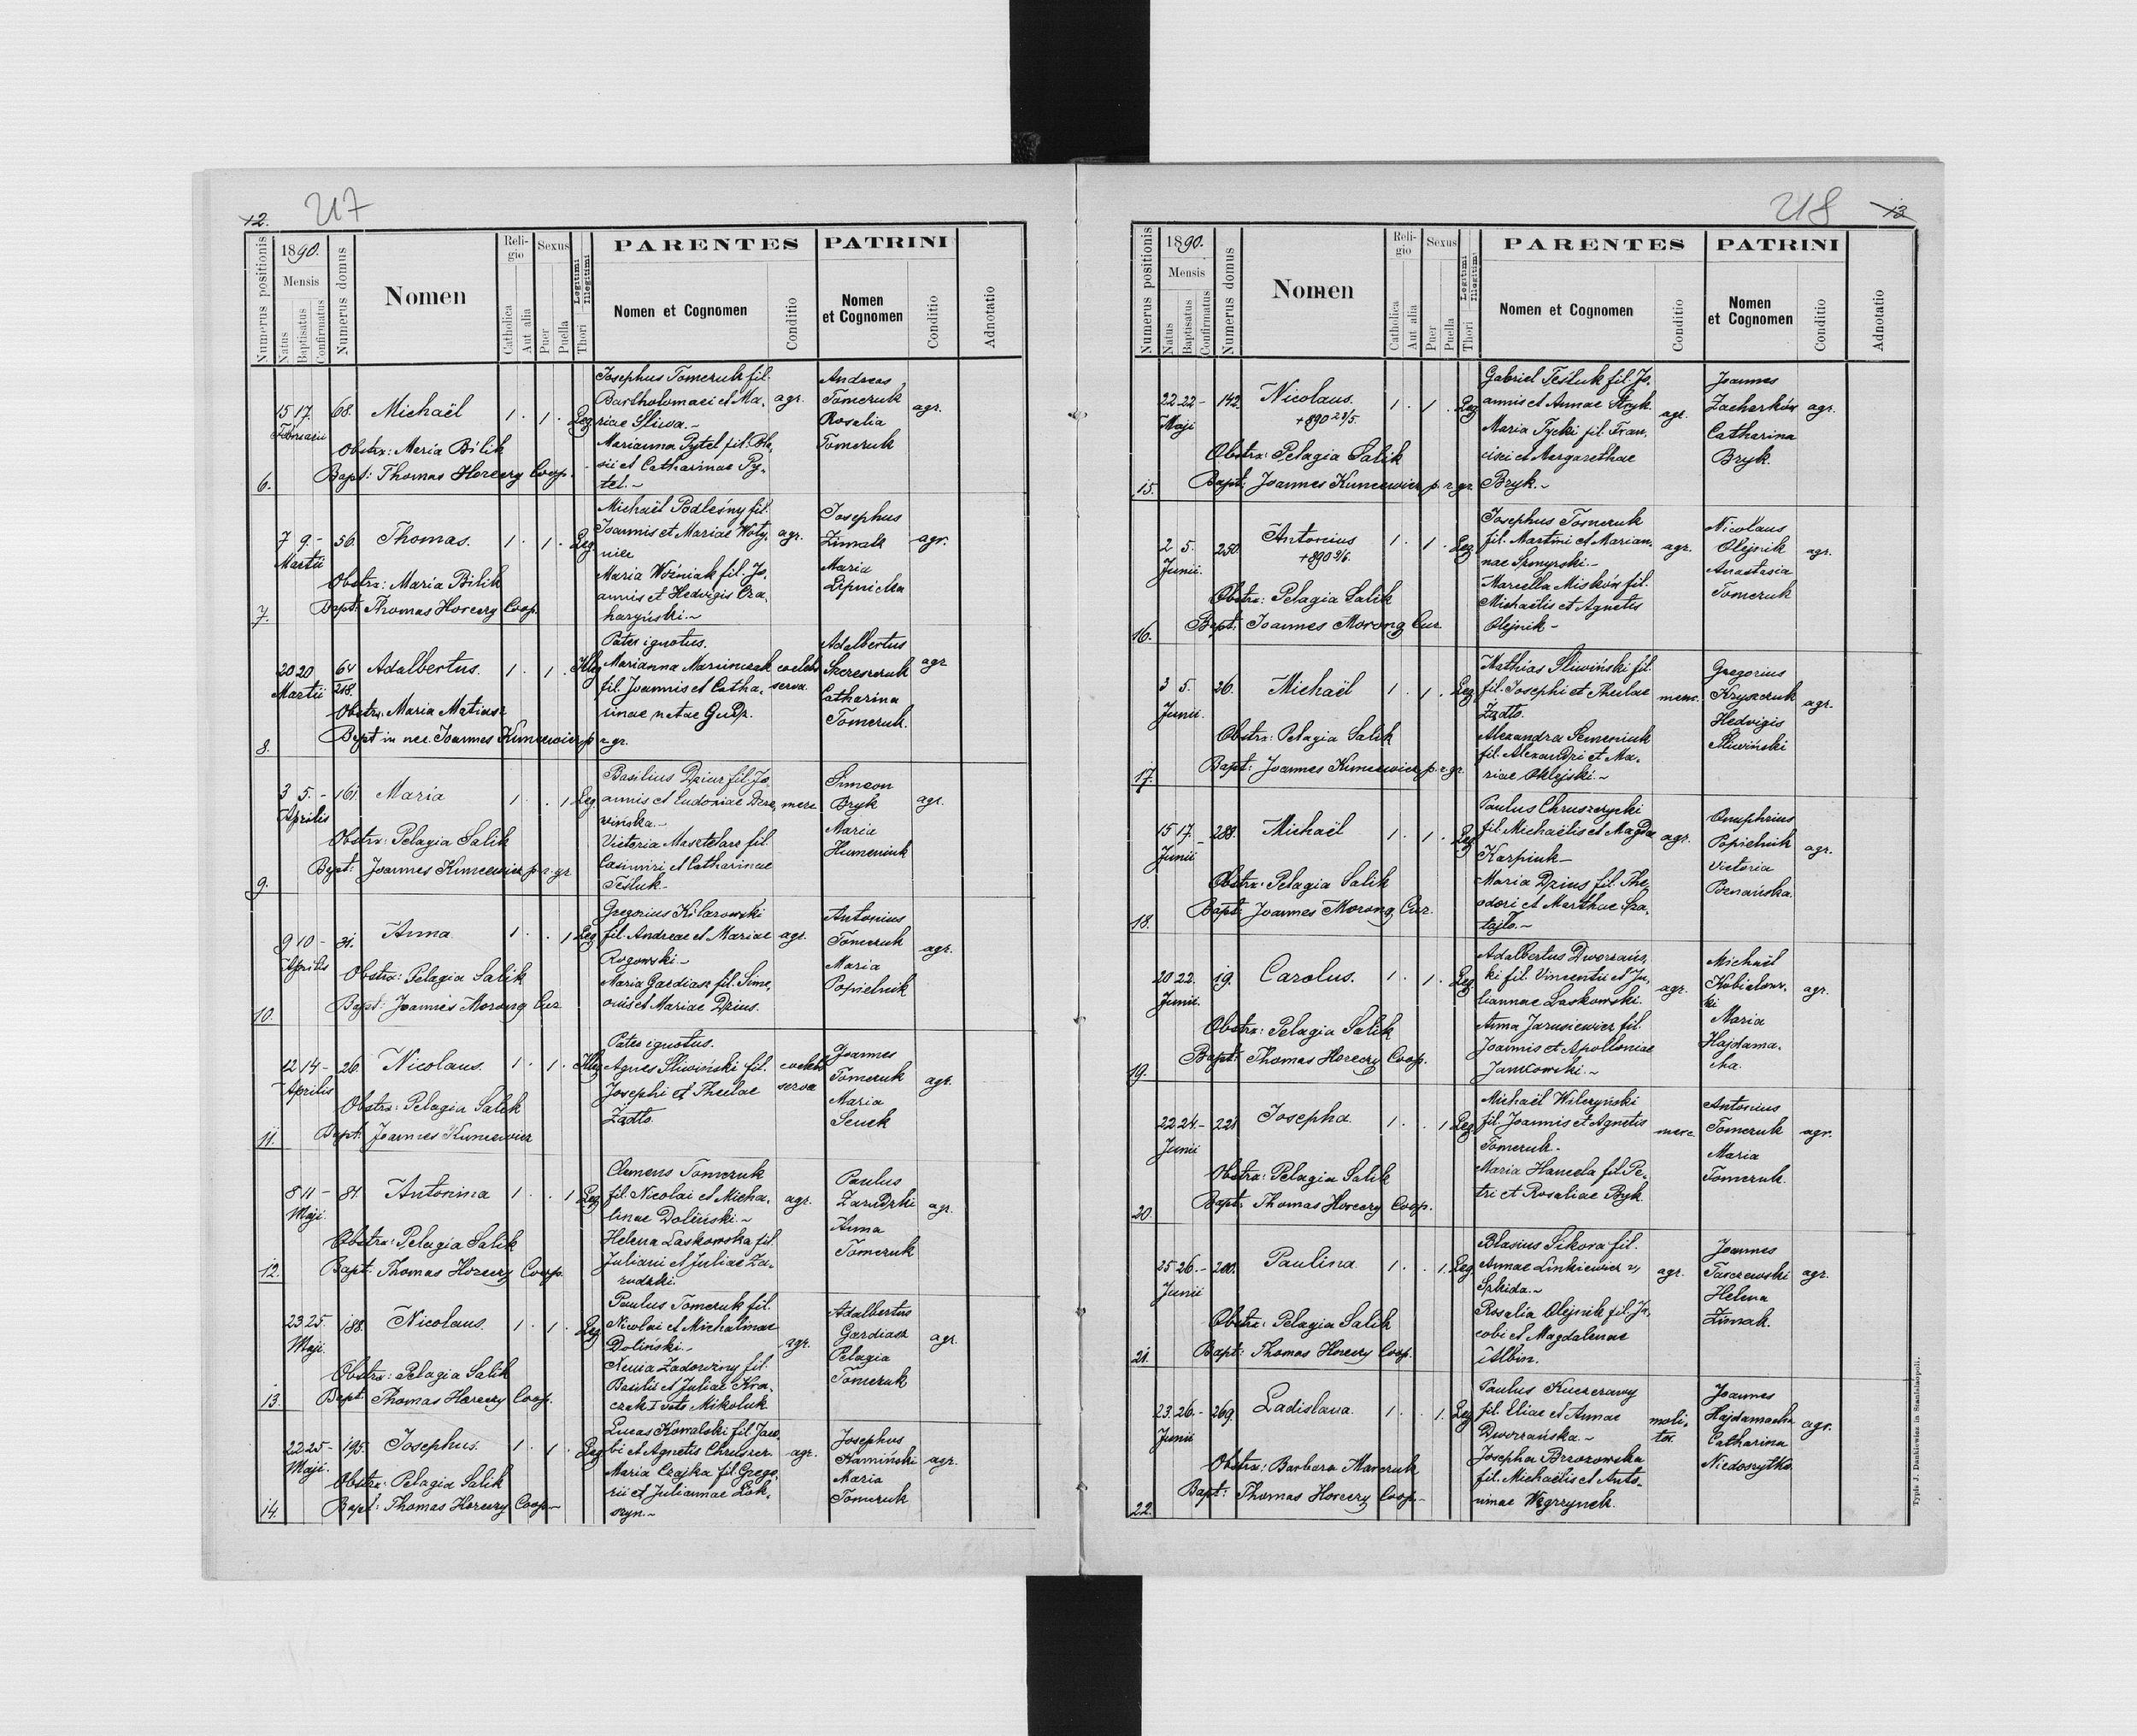 12.
217
Numerus positionis
1890.
Mensis
Natus
Baptisatus
Confirmatus
Numerus domus
Nomen
Reli-
gio
Catholica
Aut alia
Sexus
Puer
Puella
Legitimi
Illegitimi
Thori
PARENTES
Nomen et Cognomen
Conditio
PATRINI
Nomen
et Cognomen
Conditio
Adnotatio
6.
15 17
Februarii
68.
Michaël
1. 1. Leg.
Obstx: Maria Bilik
Bapt: Thomas Horeczy Coop.
Josephus Tomczuk fil.
Bartholomaei et Ma-
riae Sliwa.-
Marianna Pytel fil. Bla-
sii et Catharinae Py-
tel.-
agr.
Andreas
Tomczuk
Rosalia
Tomczuk
agr.
7.
7 9.-
Martii
56.
Thomas.
1. 1. Leg.
Obstx: Maria Bilik
Bapt: Thomas Horeczy Coop.
Michaël Podleśny fil.
Joannis et Mariae
Maria Woźniak fil. Jo-
annis et Hedvigis Cza-
haryński.-
agr.
Josephus
Zimak
Maria
Lipnicka
agr.
8.
20 20
Martii
64
218.
Adalbertus.
1. 1. Illeg.
Obstx. Maria Matiasz
Bapt in nec. Joannes Kuncewicz p r. gr.
Pater ignotus.
Marianna Marcinczak
fil. Joannis et Catha-
rinae natae
coelebs
serva
Adalbertus
Catharina
Tomczuk.
agr
9.
3 5.-
Aprilis
161.
Maria
1. 1 Leg.
Obstx: Pelagia Salik
Bapt: Joannes Kuncewicz p. r. gr.
Basilius Dzius fil. Jo-
annis et Eudoxiae Dze-
wińska.-
Victoria Masztelarz fil.
Casimiri et Catharinae
Teśluk.-
merc.
Simeon
Bryk
Maria
Humeniuk
agr.
10.
9 10-
Aprilis
31.
Anna
1. 1 Leg.
Obstx: Pelagia Salik
Bapt: Joannes Morong Cur
Gregorius Kilarowski
fil. Andreae et Mariae
Rogowski.-
Maria Gardiasz fil. Sime-
onis et Mariae Dzius.
agr.
Antonius
Tomczuk
Maria
Popielnik
agr.
11.
12 14-
Aprilis
26.
Nicolaus.
1. 1. Illeg.
Obstx: Pelagia Salik
Bapt: Joannes Kuncewicz
Pater ignotus.
Agnes Sliwiński fil.
Josephi et Theclae
Żądło.
coelebs
serva
Joannes
Tomczuk
Maria
Senek
agr.
12.
8 11-
Maji.
81.
Antonina
1. 1 Leg.
Obstx: Pelagia Salik
Bapt: Thomas Horeczy Coop.
Clemens Tomczuk
fil. Nicolai et Micha-
linae Doliński.-
Helena Laskowska fil.
Juliani et Juliae Za-
rudzki.
agr.
Paulus
Zarudzki
Anna
Tomczuk
agr.
13.
23 25.
Maji.
188.
Nicolaus.
1. 1. Leg.
Obstx: Pelagia Salik
Bapt: Thomas Horeczy Coop.
Paulus Tomczuk fil.
Nicolai et Michalinae
Doliński.-
Xenia Zadowzny fil.
Basilii et Juliae Kra-
czek I voto Mikoluk
agr.
Adalbertus
Gardiasz
Pelagia
Tomczuk
agr.
14.
22 25-
Maji.
195.
Josephus.
1. 1. Leg.
Obstx: Pelagia Salik
Bapt: Thomas Horeczy Coop.-
Lucas Kowalski fil. Jaco-
bi et Agnetis
Maria Czajka fil. Grego-
rii et Juliannae Lok-
szyn.-
agr.
Josephus
Kamiński
Maria
Tomczuk
agr.
218
13
Numerus positionis
1890.
Mensis
Natus
Baptisatus
Confirmatus
Numerus domus
Nomen
Reli-
gio
Catholica
Aut alia
Sexus
Puer
Puella
Legitimi
Illegitimi
Thori
PARENTES
Nomen et Cognomen
Conditio
PATRINI
Nomen
et Cognomen
Conditio
Adnotatio
15.
22 22-
Maji
142.
Nicolaus.
+890 28/5.
1. 1. Leg.
Obstx: Pelagia Salik
Bapt: Joannes Kuncewicz p. r. gr.
Gabriel Teśluk fil. Jo-
annis et Annae Stryk.
Maria Tycki fil. Fran-
cisci et Margarethae
Bryk.-
agr.
Joannes
Zacharków
Catharina
Bryk.
agr.
16.
2 5.
Junii.
250.
Antonius
+890 9/6.
1. 1. Leg.
Obstx: Pelagia Salik
Bapt: Joannes Morong Cur
Josephus Tomczuk
fil. Martini et Marian-
nae Szmyrski.-
Marcella Misków fil.
Michaëlis et Agnetis
Olejnik-
agr.
Nicolaus
Olejnik
Anastasia
Tomczuk
agr.
17.
3 5.
Junii.
26.
Michaël
1. 1. Leg.
Obstx: Pelagia Salik
Bapt: Joannes Kuncewicz p. r. gr.
Mathias Sliwiński fil.
fil. Josephi et Theclae
Żądło.
Alexandra Semeniuk
fil. Alexandri et Ma-
riae Oklejski.-
merc.
Gregorius
Kryszczuk
Hedvigis
Sliwiński
agr.
18.
15 17.
Junii
288.
Michaël
1. 1. Leg.
Obstx: Pelagia Salik
Bapt: Joannes Morong Cur.
Paulus Chruszczycki
fil. Michaëlis et Magdae
Karpiuk-
Maria Dzius fil. The-
odori et Marthae Sza-
tajło.-
agr.
Onuphrius
Popielnik
Victoria
Poznańska.
agr.
19.
20 22.
Junii
19.
Carolus.
1. 1. Leg.
Obstx: Pelagia Salik
Bapt: Thomas Horeczy Coop.
Adalbertus Dworzańs-
ki fil. Vincentii et Ju-
liannae Laskowski.
Anna Jarusiewicz fil.
Joannis et Apolloniae
Jankowski.-
agr.
Michaël
Kobielows-
ki
Maria
Hajdama-
cha.
agr.
20.
22 24-
Junii
221
Josepha
1. 1 Leg.
Obstx: Pelagia Salik
Bapt: Thomas Horeczy Coop.
Michaël Wilczyński
fil. Joannis et Agnetis
Tomczuk.-
Maria Hancela fil. Pe-
tri et Rosaliae Byk.
merc.
Antonius
Tomczuk
Maria
Tomczuk.
agr.
21.
25 26.-
Junii
200.
Paulina
1. 1. Leg.
Obstx: Pelagia Salik
Bapt: Thomas Horeczy Coop.
Blasius Sikora fil.
Annae Linkiewicz
Rosalia Olejnik fil. Ja-
cobi et Magdalenae
Albin.
agr.
Joannes
Tarczewski
Helena
Zimak.
agr.
22.
23. 26.-
Junii
269.
Ladislava.
1. 1. Leg.
Obstx: Barbara Marczuk
Bapt: Thomas Horeczy Coop.-
Paulus Kuczerawy
fil. Eliae et Annae
Dworzańska.-
Josepha Brzozowska
fil. Michaëlis et Anto-
ninae Węgrzynek.
moli-
tor.
Joannes
Hajdamacha
Catharina
Niedoszytko.
agr.
Typis J. Dankiewicz in Stanislaopoli.